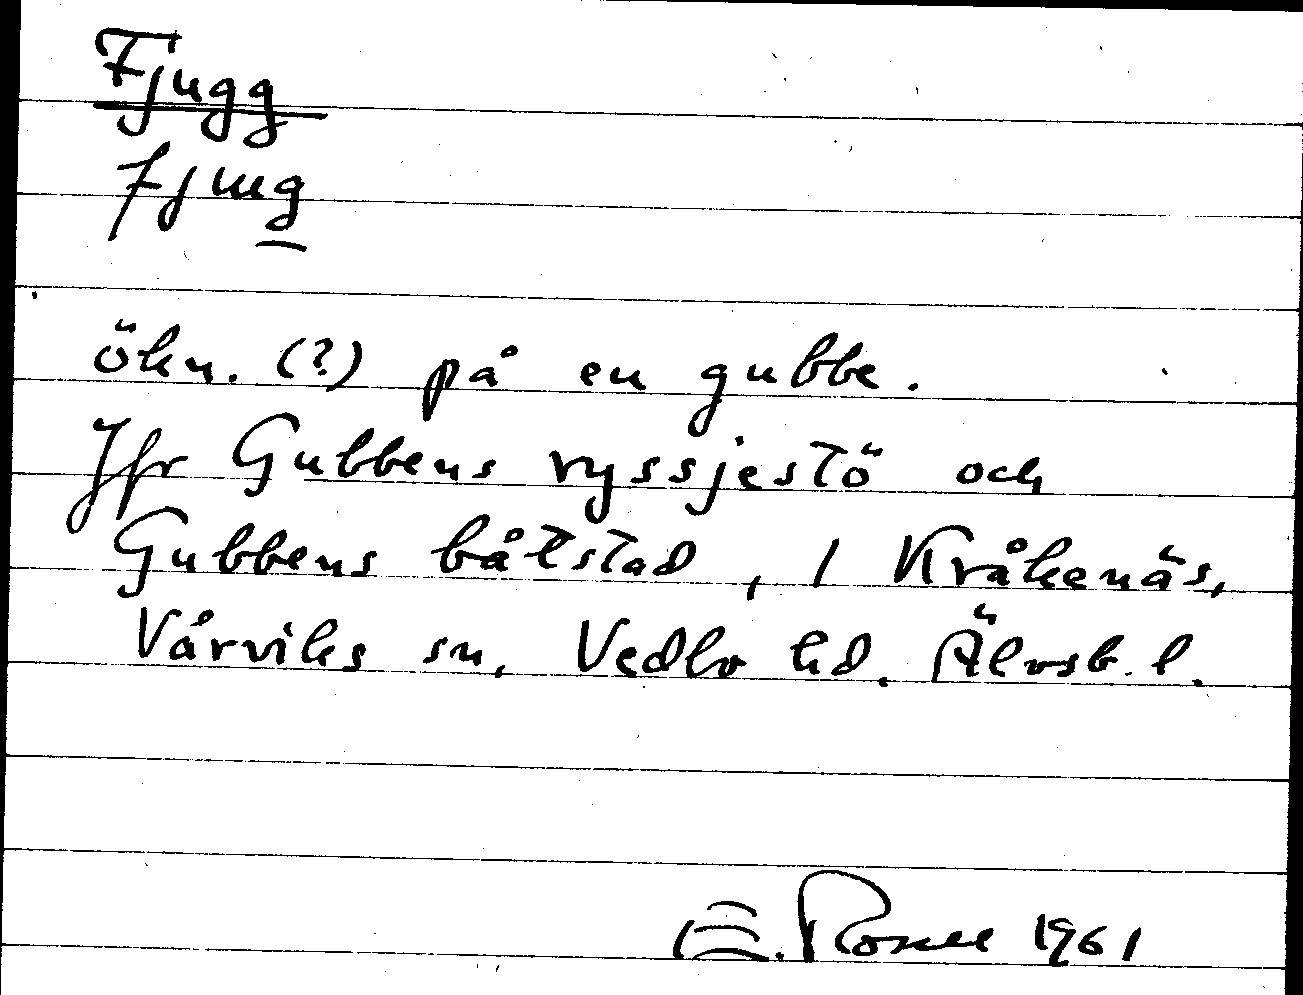 Fjugg
fjug
ökn. (?) på en gubbe.
Jfr Gubbens ryssjestö och
Gubbens båtstad, / Kråkenäs,
Vårviks sn, Vedbo hd. Älvsb. l.
E. 1961